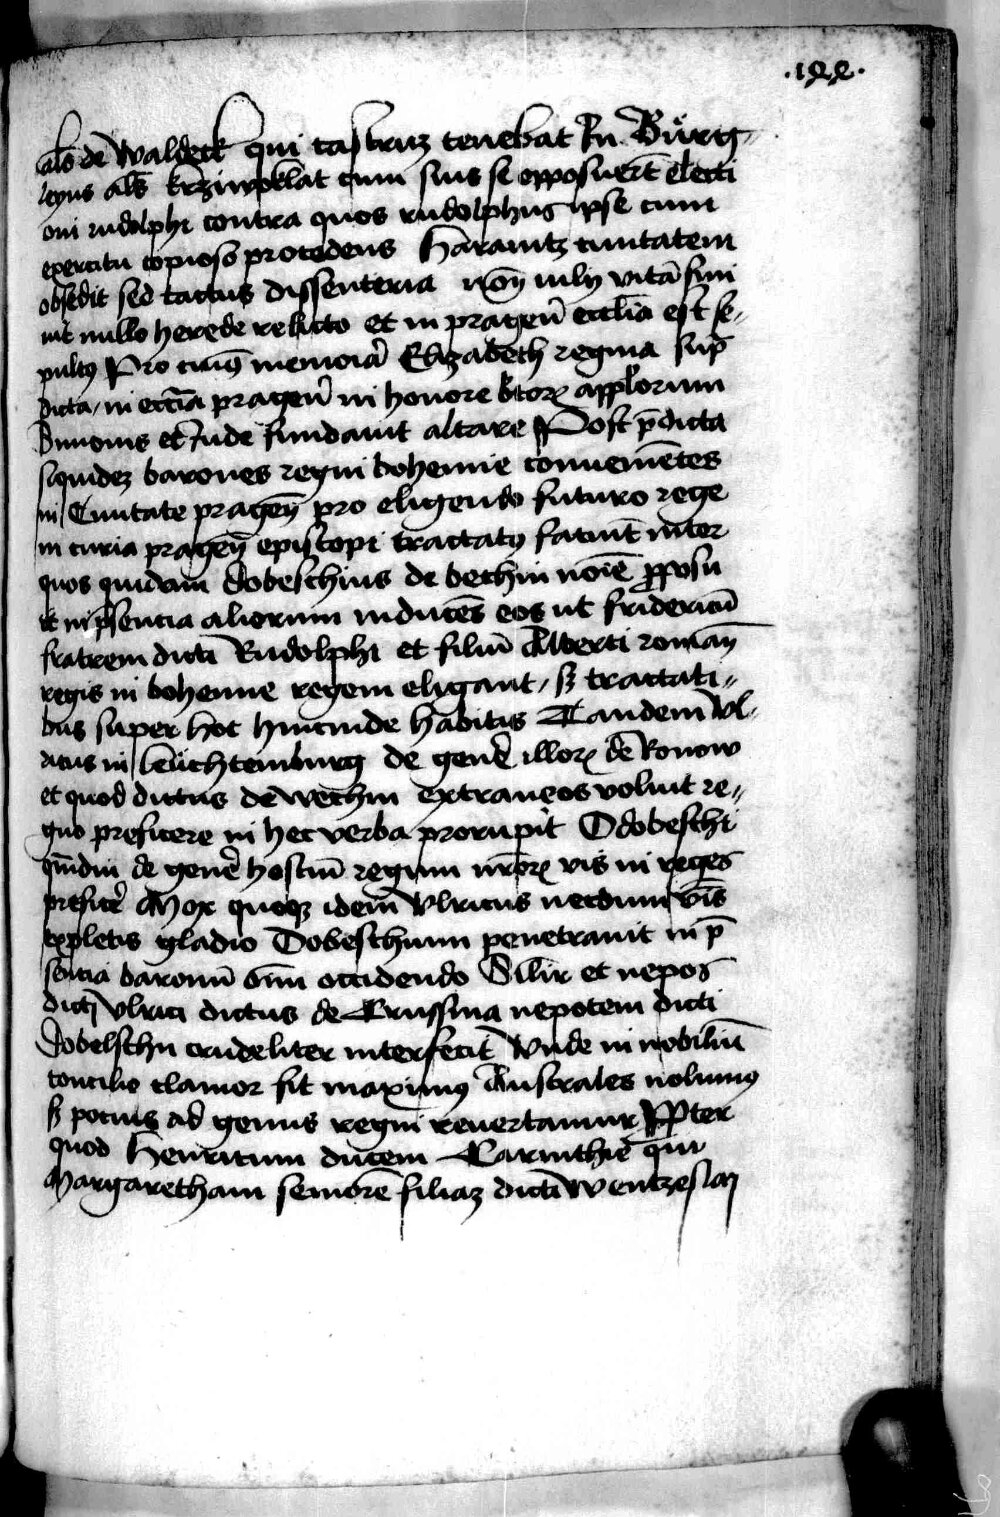 .122.
als de Waldeck qui castrum tenebat In Bürg-
leyns als krziwoklat cum suis se opposuert̄ electi
oni rudolphi contra quos rudolphus ipse cum
exercitu copioso procedens Harauitz ciuitatem
obsedit sed tactus dissenteria non iulij vitā fini
uit nullo herede relicto et in pragen̄ eccl̄ia est se-
pultꝰ Pro cuiꝰ memoria Elizabeth regina sup̄
dicta, in eccīa pragen̄ in honore btorꝝ applorum
Simonis et Iude fundauit altare Post p̄dicta
siquidez barones regni bohemie conuenientēs
in Ciuitate pragen̄ pro eligendo futuro rege
in curia pragen̄ episcopi tractatꝰ faciūt inter
quos quidam dobeschius de bechin noīe ꝓposu
it in p̄sentia aliorum inducēs eos ut fridericū
fratrem dicti Rudolphi et filiū Alberti romanꝝ
regis in bohemie regem eligant, sꝫ tractati-
bus super hoc hincinde habitis Tandem Vl-
ricus in leüchtemburg de genē illorꝝ de Ronow
et quod dictus de Wechin extraneos voluit re-
gno preficere in hec verba prorupit O dobeschi
qm̄diu de genē hostiū regum nr̄orꝝ vis in reges
preficē Mox quoqꝫ idem Vlricus necdum vīs
expletis gladio Dobeschium penetrauit in p̄
sencia baronū om̄i occidendo Silr̄ et nepos
dicti Vlrici dictus de Crussina nepotem dicti
dobelschu crudeliter interfecit Vnde in nobiliū
concilio clamor fit maximꝰ Australes nolumꝰ
sꝫ pocius ad genus regni reuertamur Ꝓpter
quod Henricum ducem Carinthie qui
Margaretham seniorē filiaꝫ dicti Wentzeslai